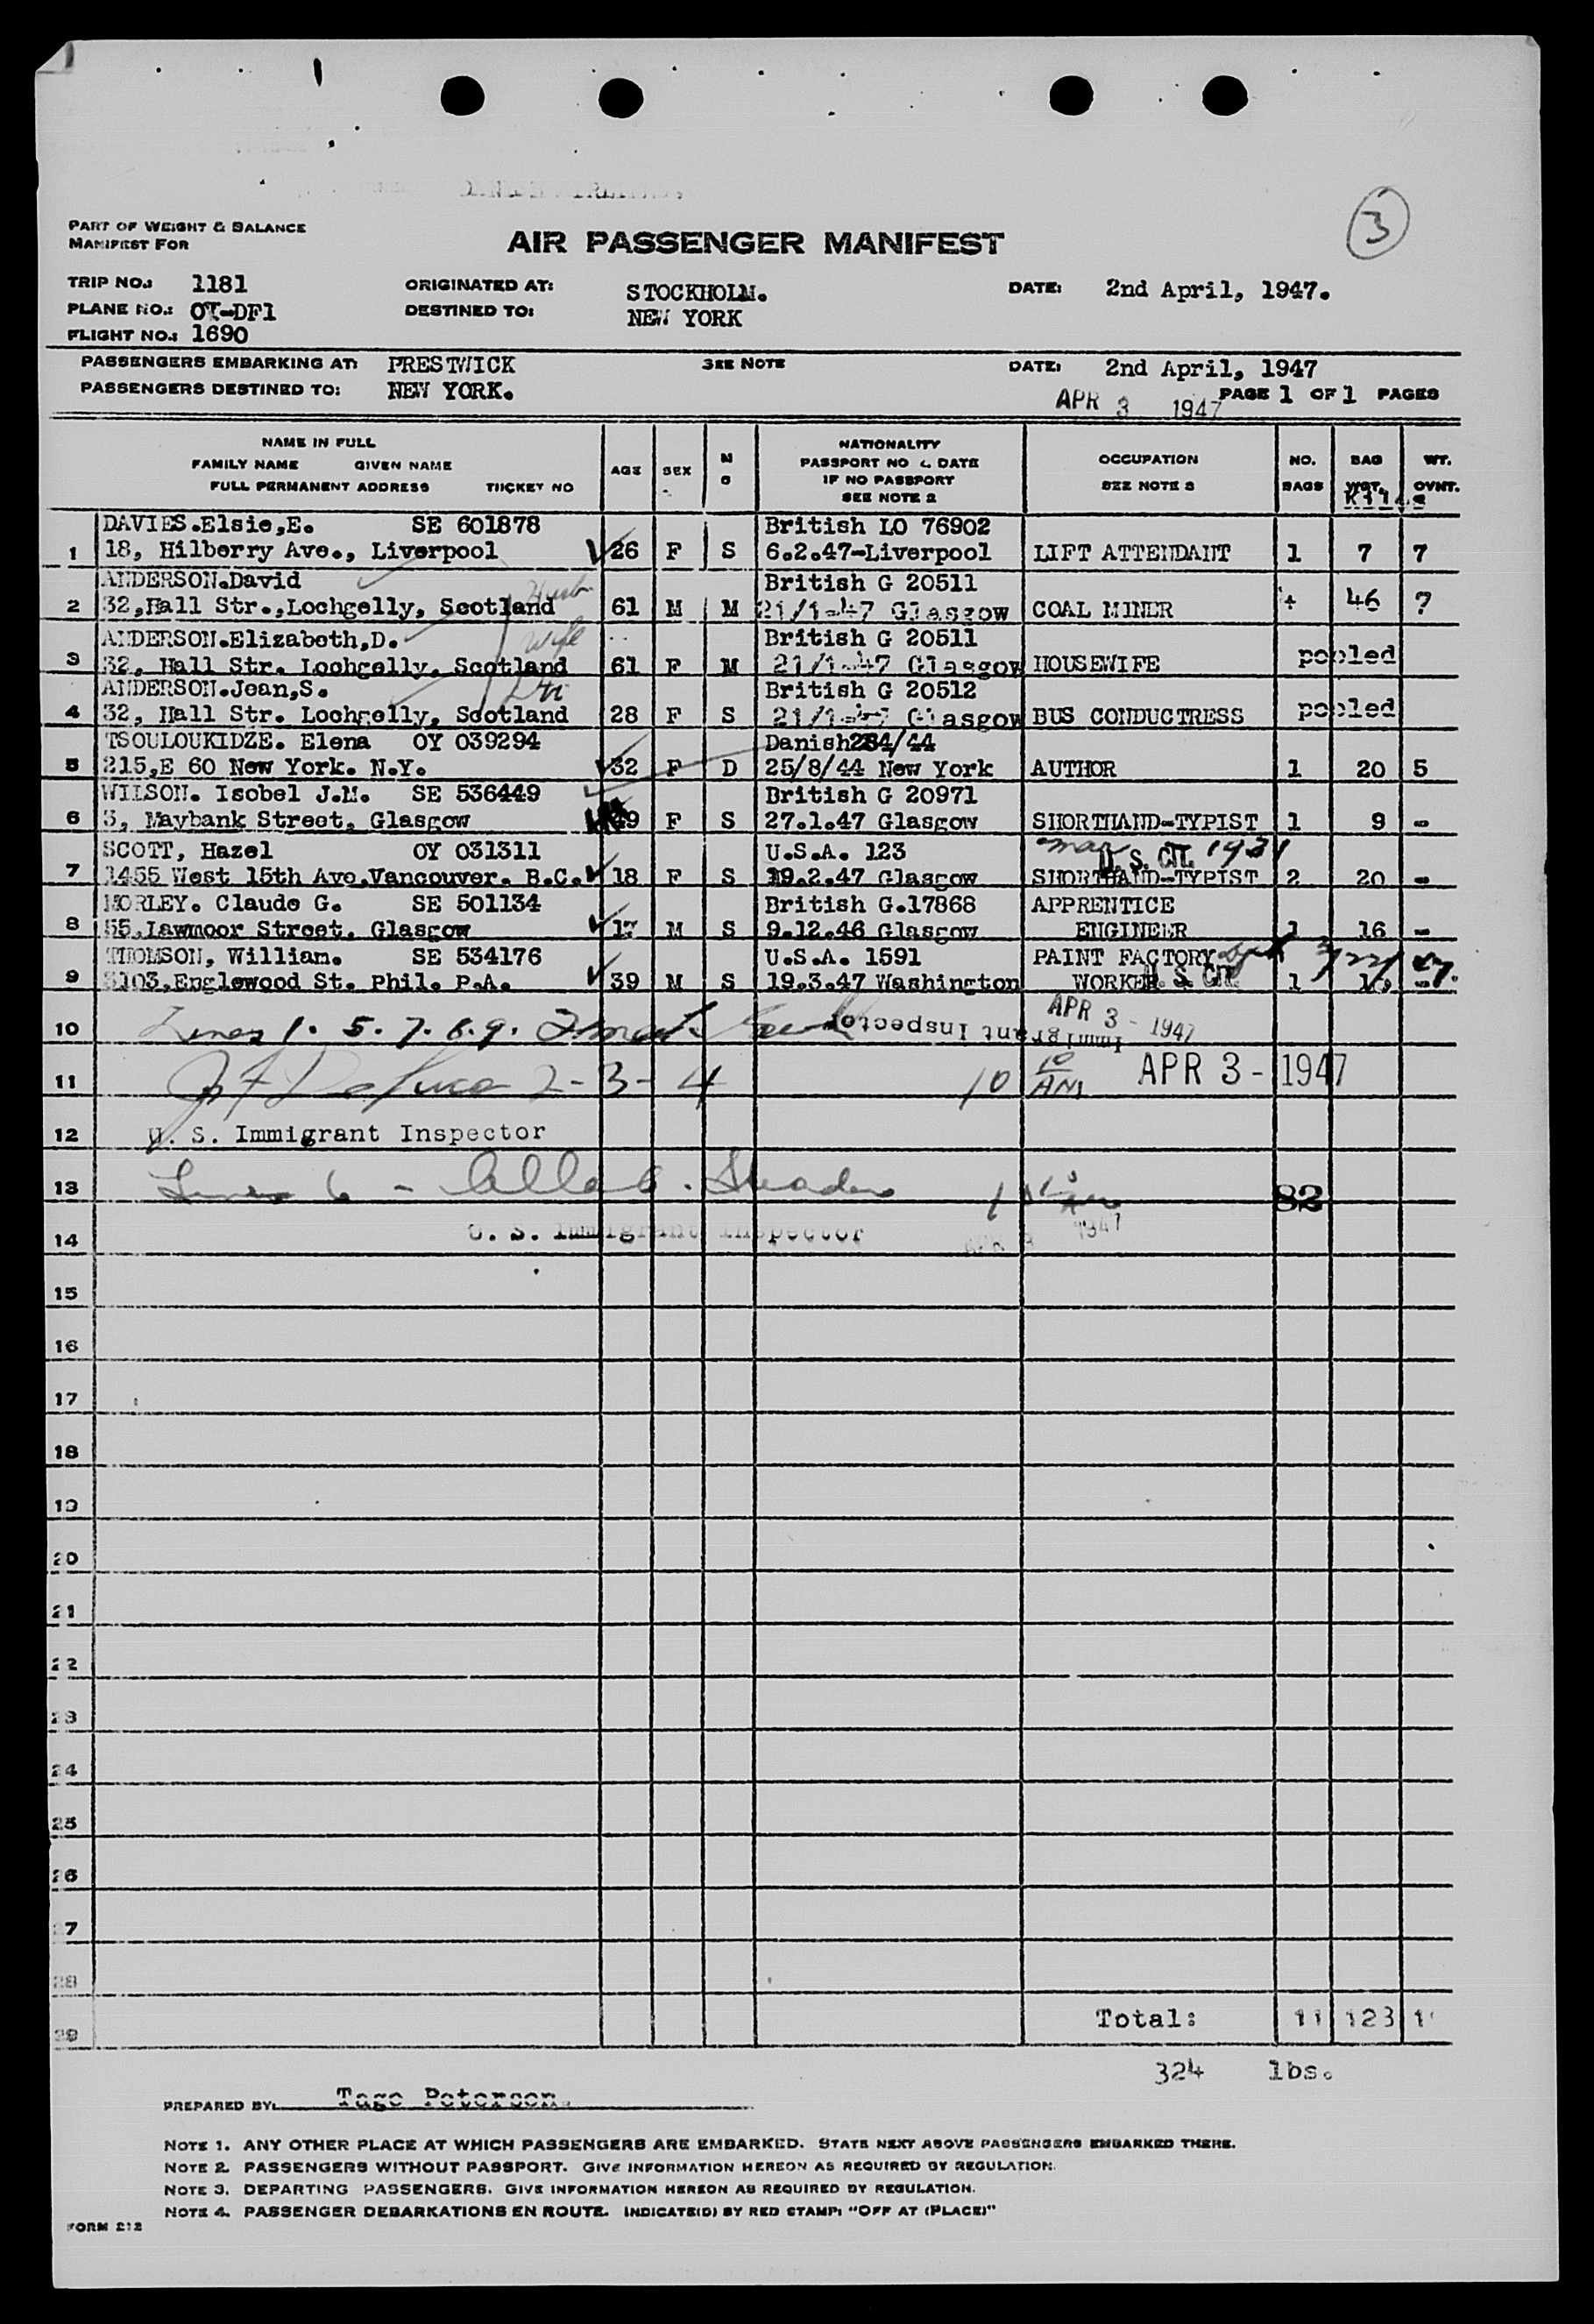 3
PART OF WEIGHT & BALANCE
MANIFEST FOR
AIR PASSENGER MANIFEST
TRIP NO.: 1181 ORIGINATED AT: STOCKHOLM. DATE: 2nd April, 1947.
PLANE NO.: OY-DF1 DESTINED TO: NEW YORK
FLIGHT NO.: 1690
PASSENGERS EMBARKING AT: PRESTWICK SEE NOTE DATE: 2nd April, 1947
PASSENGERS DESTINED TO: NEW YORK. APR 3 1947 PAGE 1 OF 1 PAGES
NAME IN FULL
FAMILY NAME GIVEN NAME
FULL PERMANENT ADDRESS TICKET NO
AGE SEX M S
NATIONALITY
PASSPORT NO & DATE
IF NO PASSPORT
SEE NOTE 2
OCCUPATION
SEE NOTE 3
NO. BAGS
BAG WGT.
WT. OVNT.
DAVIES.Elsie,E. SE 601878 British LO 76902
1 18, Hilberry Ave., Liverpool 26 F S 6.2.47-Liverpool LIFT ATTENDANT 1 7 7
ANDERSON.David British G 20511
2 32,Hall Str.,Lochgelly, Scotland Husb 61 M M 21/1-47 Glasgow COAL MINER 4 46 ?
ANDERSON.Elizabeth,D. Wife British G 20511
3 32, Hall Str. Lochgelly, Scotland 61 F M 21/1-47 Glasgow HOUSEWIFE pooled
ANDERSON.Jean,S. British G 20512
4 32, Hall Str. Lochgelly, Scotland 28 F S 21/1-47 Glasgow BUS CONDUCTRESS pooled
TSOULOUKIDZE. Elena OY 039294 Danish 284/44
5 215,E 60 New York. N.Y. 32 F D 25/8/44 New York AUTHOR 1 20 5
WILSON. Isobel J.M. SE 536449 British G 20971
6 3, Maybank Street, Glasgow 49 F S 27.1.47 Glasgow SHORTHAND-TYPIST 1 9 -
SCOTT, Hazel OY 031311 U.S.A. 123 U.S. CIT. 1931
7 1455 West 15th Ave.Vancouver. B.C. 18 F S 19.2.47 Glasgow SHORTHAND-TYPIST 2 20 -
MORLEY. Claude G. SE 501134 British G.17868 APPRENTICE
8 55,Lawmoor Street. Glasgow 17 M S 9.12.46 Glasgow ENGINEER 1 16 -
THOMSON, William. SE 534176 U.S.A. 1591 PAINT FACTORY
9 3103,Englewood St. Phil. P.A. 39 M S 19.3.47 Washington WORKER U. S. CIT. 1
10 Lines 1. 5. 7. 8. 9. Immigrant Inspector APR 3 - 1947
11 2-3-4 10 10 AM APR 3 - 1947
12 U. S. Immigrant Inspector
13 Lines 6 - 82
14 U. S. Immigrant Inspector 1947
15
16
17
18
19
20
21
22
23
24
25
26
27
28
29 Total: 11 123
324 lbs.
PREPARED BY: Tage Peterson.
NOTE 1. ANY OTHER PLACE AT WHICH PASSENGERS ARE EMBARKED. STATE NEXT ABOVE PASSENGERS EMBARKED THERE.
NOTE 2. PASSENGERS WITHOUT PASSPORT. GIVE INFORMATION HEREON AS REQUIRED BY REGULATION.
NOTE 3. DEPARTING PASSENGERS. GIVE INFORMATION HEREON AS REQUIRED BY REGULATION.
NOTE 4. PASSENGER DEBARKATIONS EN ROUTE. INDICATE(D) BY RED STAMP: "OFF AT (PLACE)"
FORM 212